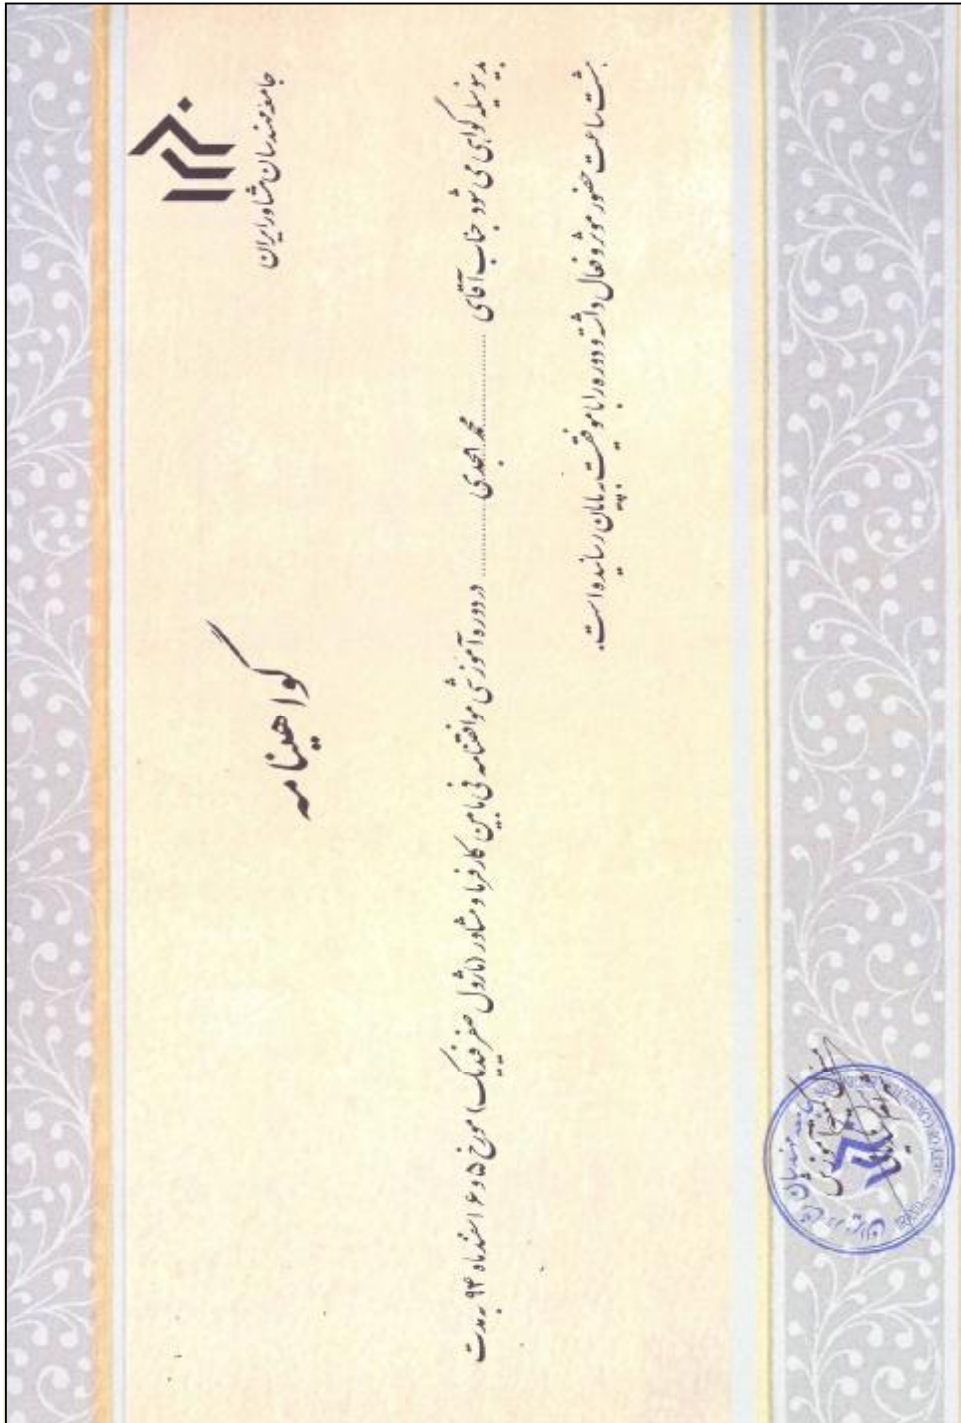 جامعه مهندسان مشاور ایران
گواهینامه
بدینوسیله گواهی می شود جناب آقای .................. محمد امجدی .......... در دوره آموزشی موافقتنامه فی مابین کارفرما و مشاور (ماژول صفر فیدیک) مورخ ۵ و ۶ اسفند ماه ۹۴ به مدت
هشت ساعت حضور موثر و فعال داشته و دوره را با موفقیت به پایان رسانیده است.
جامعه مهندسان مشاور ایران